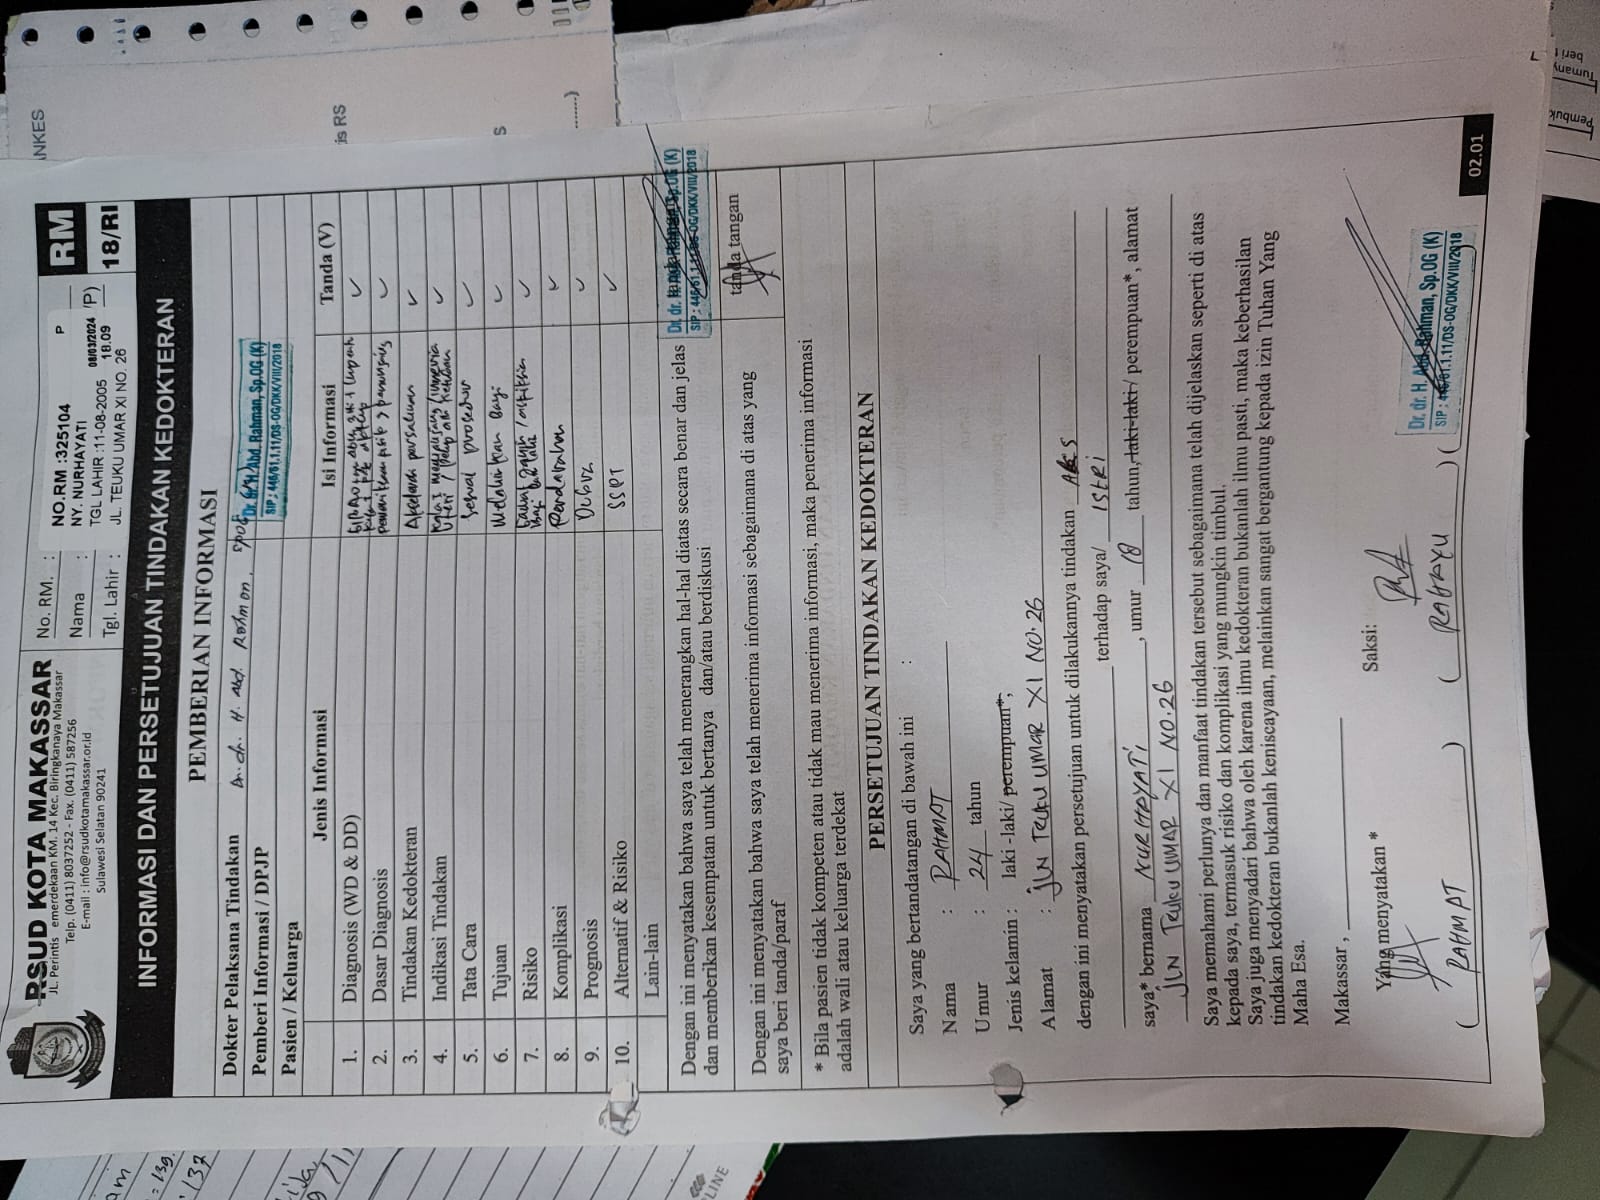 RSUD KOTA MAKASSAR
JL. Perintis emerdekaan KM. 14 Kec. Biringkanaya Makassar
Telp. (0411) 8037252 - Fax. (0411) 587256
E-mail : info@rsudkotamakassar.or.id
Sulawesi Selatan 90241
No. RM. :
Nama :
Tgl. Lahir :
NO.RM :325104 P
NY. NURHAYATI
TGL LAHIR :11-08-2005 08/03/2024 18.09
JL. TEUKU UMAR XI NO. 26
/P)
RM
18/RI
INFORMASI DAN PERSETUJUAN TINDAKAN KEDOKTERAN
PEMBERIAN INFORMASI
Dokter Pelaksana Tindakan Dr. dr. H. Abd. Rahman, SpOG
Dr. dr. H. Abd. Rahman, Sp.OG (K)
SIP : 446/61.1.11/DS-OG/DKK/VIII/2018
Pemberi Informasi / DPJP
Pasien / Keluarga
Jenis Informasi Isi Informasi Tanda (V)
1. Diagnosis (WD & DD)
2. Dasar Diagnosis Pemeriksaan fisik
3. Tindakan Kedokteran Akselerasi persalinan
4. Indikasi Tindakan
5. Tata Cara Sesuai prosedur
6. Tujuan Melahirkan Bayi
7. Risiko
8. Komplikasi Perdarahan
9. Prognosis Dubia
10. Alternatif & Risiko SSPT
Lain-lain
Dengan ini menyatakan bahwa saya telah menerangkan hal-hal diatas secara benar dan jelas
dan memberikan kesempatan untuk bertanya dan/atau berdiskusi
tanda tangan
Dr. dr. H. Abd. Rahman, Sp.OG (K)
SIP : 446/61.1.11/DS-OG/DKK/VIII/2018
Dengan ini menyatakan bahwa saya telah menerima informasi sebagaimana di atas yang
saya beri tanda/paraf
tanda tangan
* Bila pasien tidak kompeten atau tidak mau menerima informasi, maka penerima informasi
adalah wali atau keluarga terdekat
PERSETUJUAN TINDAKAN KEDOKTERAN
Saya yang bertandatangan di bawah ini :
Nama : RAHMAT
Umur : 24 tahun
Jenis kelamin : laki -laki/ perempuan*,
Alamat : JLN TEUKU UMAR XI NO.26
dengan ini menyatakan persetujuan untuk dilakukannya tindakan
terhadap saya/ ISTRI
saya* bernama NURHAYATI, umur 18 tahun, laki-laki / perempuan*, alamat
JLN TEUKU UMAR XI NO.26
Saya memahami perlunya dan manfaat tindakan tersebut sebagaimana telah dijelaskan seperti di atas
kepada saya, termasuk risiko dan komplikasi yang mungkin timbul.
Saya juga menyadari bahwa oleh karena ilmu kedokteran bukanlah ilmu pasti, maka keberhasilan
tindakan kedokteran bukanlah keniscayaan, melainkan sangat bergantung kepada izin Tuhan Yang
Maha Esa.
Makassar ,
Yang menyatakan * Saksi:
( RAHMAT ) ( RAHAYU ) (
Dr. dr. H. Abd. Rahman, Sp.OG (K)
SIP : 446/61.1.11/DS-OG/DKK/VIII/2018
02.01